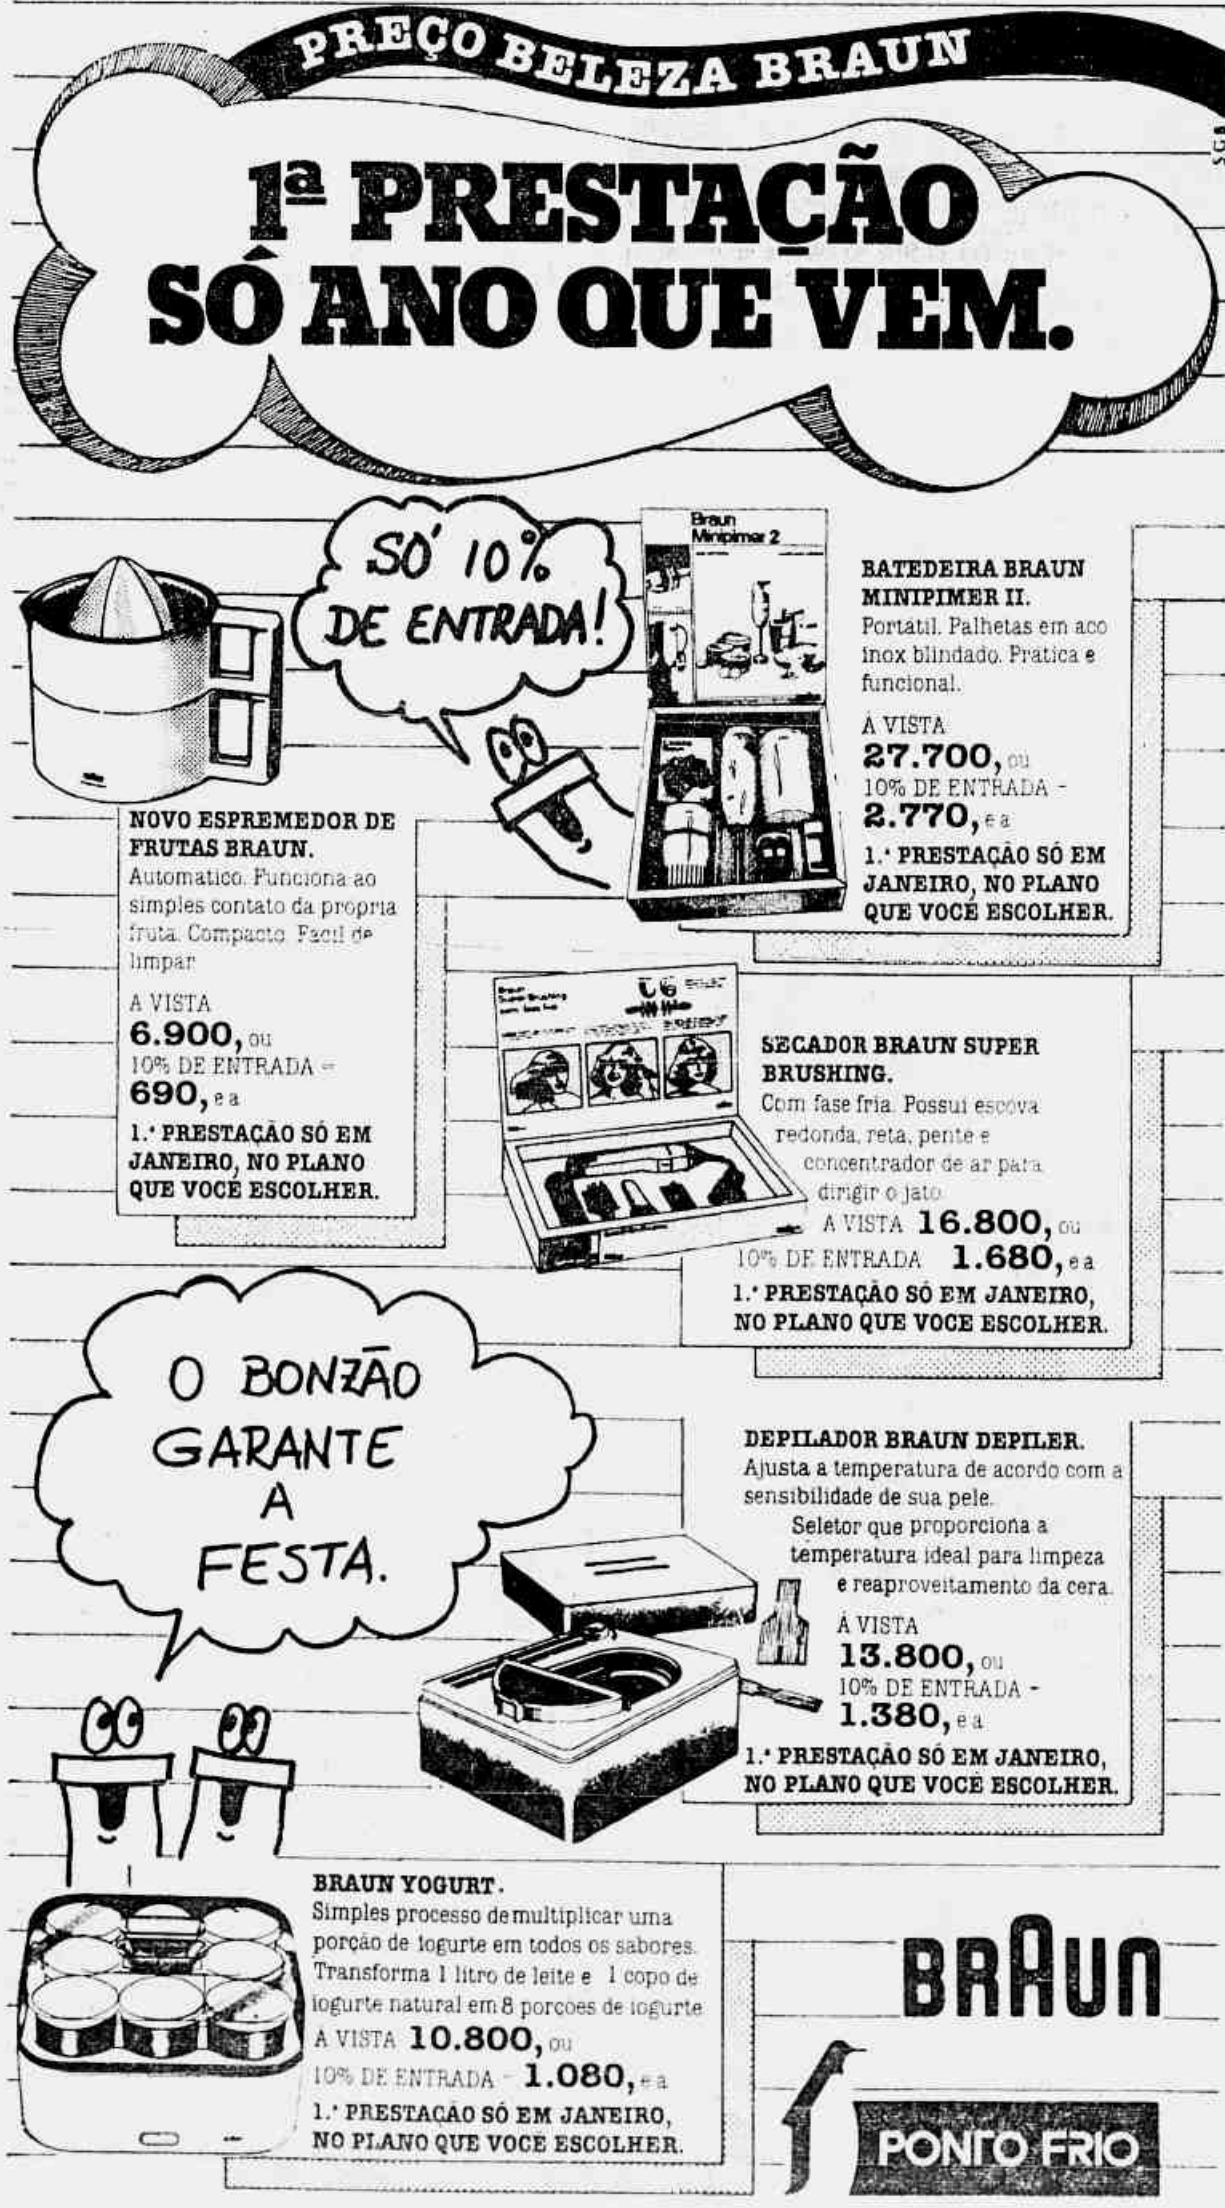 PREÇO BELEZA BRAUN
SGB
1ª PRESTAÇÃO
SÓ ANO QUE VEM.
SÓ 10%
DE ENTRADA!
Braun
Minipimer 2
BATEDEIRA BRAUN
MINIPIMER II.
Portatil. Palhetas em aco
inox blindado. Pratica e
funcional.
À VISTA
27.700, ou
10% DE ENTRADA -
2.770, e a
1.ª PRESTAÇÃO SÓ EM
JANEIRO, NO PLANO
QUE VOCÊ ESCOLHER.
NOVO ESPREMEDOR DE
FRUTAS BRAUN.
Automatico. Funciona ao
simples contato da propria
fruta. Compacto. Facil de
limpar
A VISTA
6.900, ou
10% DE ENTRADA -
690, e a
1.ª PRESTAÇÃO SÓ EM
JANEIRO, NO PLANO
QUE VOCÊ ESCOLHER.
Braun
Super Brushing
SECADOR BRAUN SUPER
BRUSHING.
Com fase fria. Possui escova
redonda, reta, pente e
concentrador de ar para
dirigir o jato
A VISTA 16.800, ou
10% DE ENTRADA 1.680, e a
1.ª PRESTAÇÃO SÓ EM JANEIRO,
NO PLANO QUE VOCE ESCOLHER.
O BONZÃO
GARANTE
A
FESTA.
DEPILADOR BRAUN DEPILER.
Ajusta a temperatura de acordo com a
sensibilidade de sua pele.
Seletor que proporciona a
temperatura ideal para limpeza
e reaproveitamento da cera.
À VISTA
13.800, ou
10% DE ENTRADA -
1.380, e a
1.ª PRESTAÇÃO SÓ EM JANEIRO,
NO PLANO QUE VOCÊ ESCOLHER.
BRAUN YOGURT.
Simples processo de multiplicar uma
porção de iogurte em todos os sabores.
Transforma 1 litro de leite e 1 copo de
iogurte natural em 8 porcoes de iogurte
A VISTA 10.800, ou
10% DE ENTRADA - 1.080, e a
1.ª PRESTAÇÃO SÓ EM JANEIRO,
NO PLANO QUE VOCÊ ESCOLHER.
BRAUN
PONTO FRIO